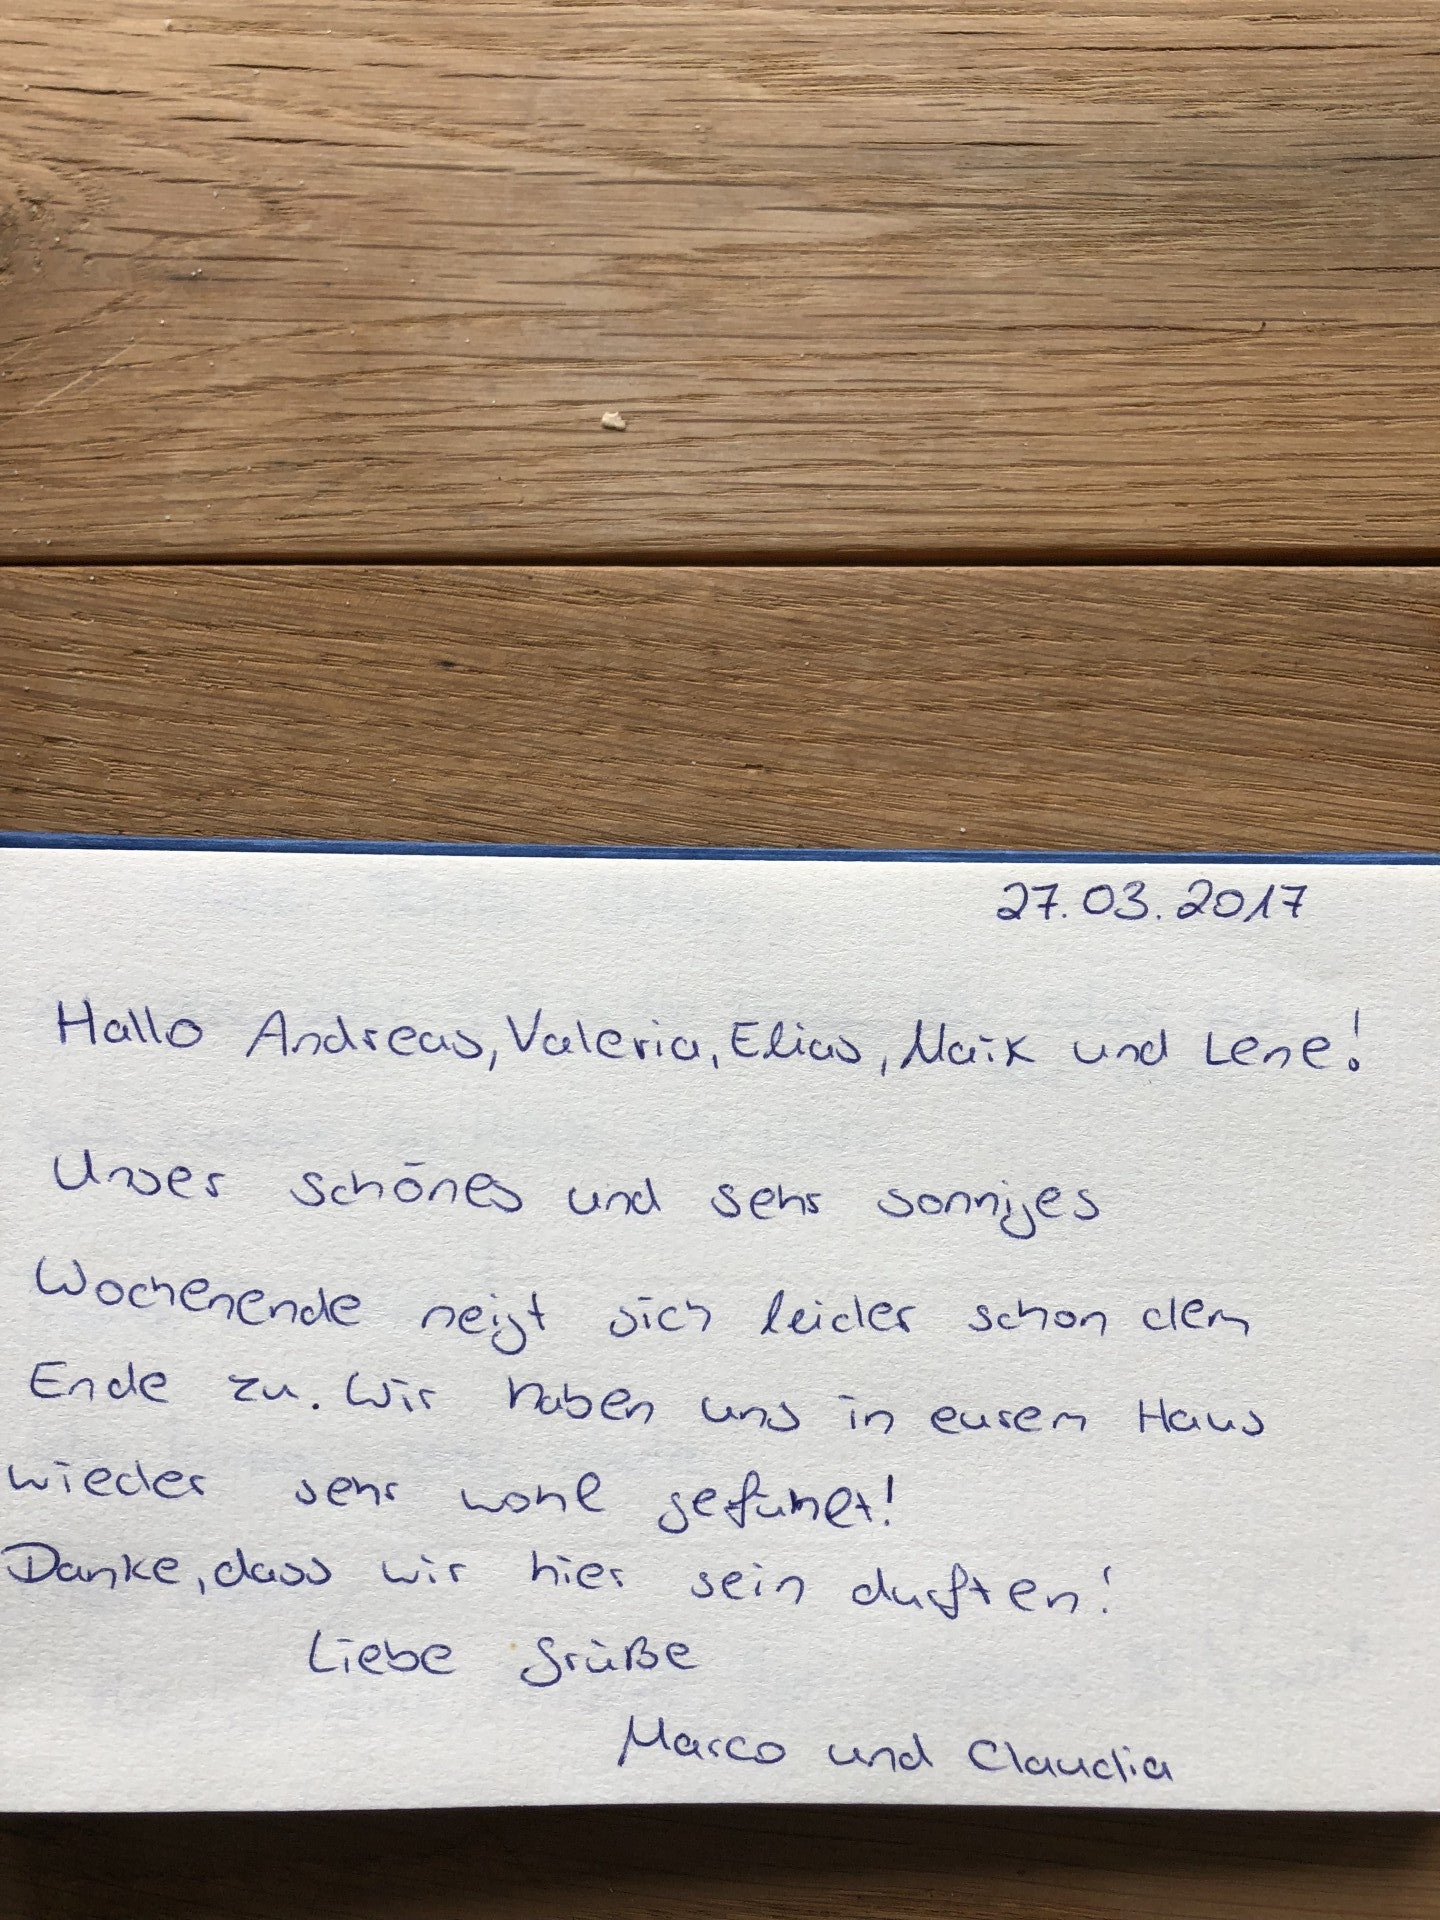 27.03.2017
Hallo Andreas, Valeria, Elias, Maik und Lene!
Unser schönes und sehr sonniges
Wochenende neigt sich leider schon dem
Ende zu. Wir haben uns in eurem Haus
wieder sehr wohl gefühlt!
Danke, dass wir hier sein durften!
Liebe Grüße
Marco und Claudia